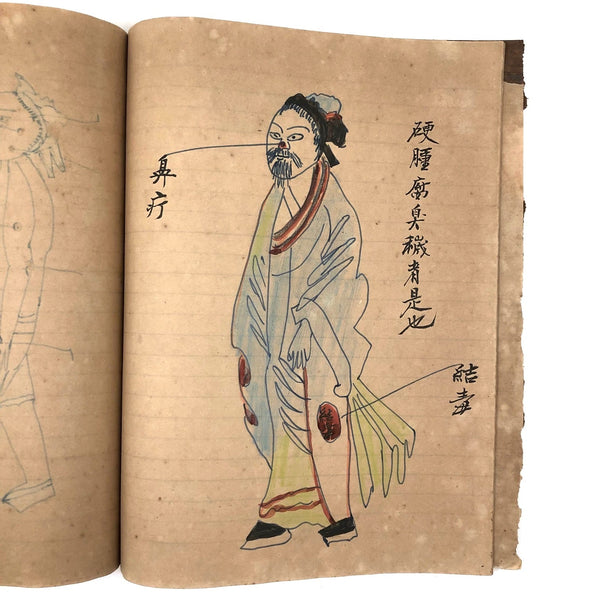 硬腫腐臭穢者是也
鼻疔
結毒